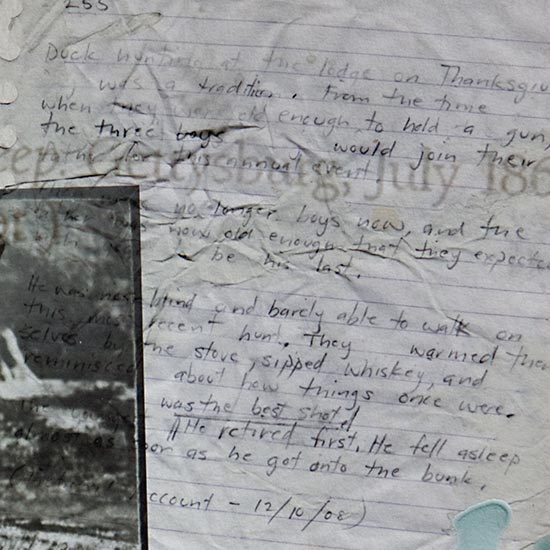 255
Duck hunting at the lodge on Thanksgiv
was a tradition. From the time
when they were old enough to hold a gun,
the three boys would join their
father for this annual event
eep. Gettysburg, July 186
no longer boys now, and the
was now old enough that they expected
be his last.
He was near blind and barely able to walk on
this most recent hunt. They warmed them
selves by the stove, sipped whiskey, and
reminisced about how things once were.
was the best shot
He retired first. He fell asleep
almost as soon as he got onto the bunk.
ccount - 12/10/08)